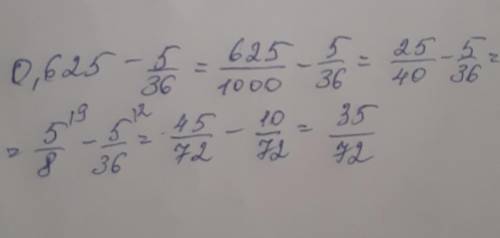 0,625 - 5/36 = 625/1000 - 5/36 = 25/40 - 5/36 =
= 5^{19}/8 - 5^{12}/36 = 45/72 - 10/72 = 35/72